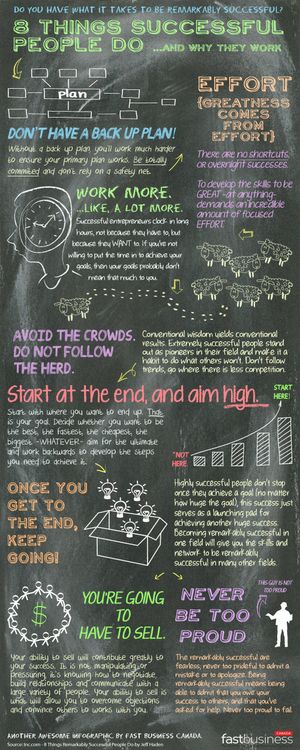 DO YOU HAVE WHAT IT TAKES TO BE REMARKABLY SUCCESSFUL?
8 THINGS SUCCESSFUL
PEOPLE DO ...AND WHY THEY WORK
plan
DON'T HAVE A BACK UP PLAN!
Without a back up plan, you'll work much harder
to ensure your primary plan works. Be totally
commited and don't rely on a safety net.
EFFORT
{GREATNESS
COMES
FROM
EFFORT}
There are no shortcuts,
or overnight successes.
To develop the skills to be
GREAT -at anything-
demands an incredible
amount of focused
EFFORT.
WORK MORE.
...LIKE, A LOT MORE.
Successful entrepreneurs clock in long
hours, not because they have to, but
because they WANT to. If you're not
willing to put the time in to achieve your
goals, then your goals probably don't
mean that much to you.
AVOID THE CROWDS.
DO NOT FOLLOW
THE HERD.
Conventional wisdom yields conventional
results. Extremely successful people stand
out as pioneers in their field and make it a
habit to do what others won't. Don't follow
trends, go where there is less competition.
Start at the end, and aim high.
START
HERE!
Start with where you want to end up. That
is your goal. Decide whether you want to be
the best, the fastest, the cheapest, the
biggest, -WHATEVER- aim for the ultimate
and work backwards to develop the steps
you need to achieve it.
*NOT
HERE
ONCE YOU
GET TO
THE END,
KEEP
GOING!
Highly successful people don't stop
once they achieve a goal (no matter
how huge the goal), this success just
serves as a launching pad for
achieving another huge success.
Becoming remarkably successful in
one field will give you the skills and
network to be remarkably
successful in many other fields.
$
YOU'RE GOING
TO
HAVE TO SELL.
THIS GUY IS NOT
TOO PROUD
NEVER
BE TOO
PROUD
Your ability to sell will contribute greatly to
your success. It is not manipulating or
pressuring, it's knowing how to negotiate,
build relationships and communicate with a
large variety of people. Your ability to sell is
what will allow you to overcome objections
and convince others to work with you.
The remarkably successful are
fearless, never too prideful to admit a
mistake or to apologize. Being
remarkably successful means being
able to admit that you owe your
success to others, and that you've
asked for help. Never too proud to fail.
ANOTHER AWESOME INFOGRAPHIC BY FAST BUSINESS CANADA.
Source: Inc.com - 8 Things Remarkably Successful People Do by Jeff Haden
CANADA
fastbusiness